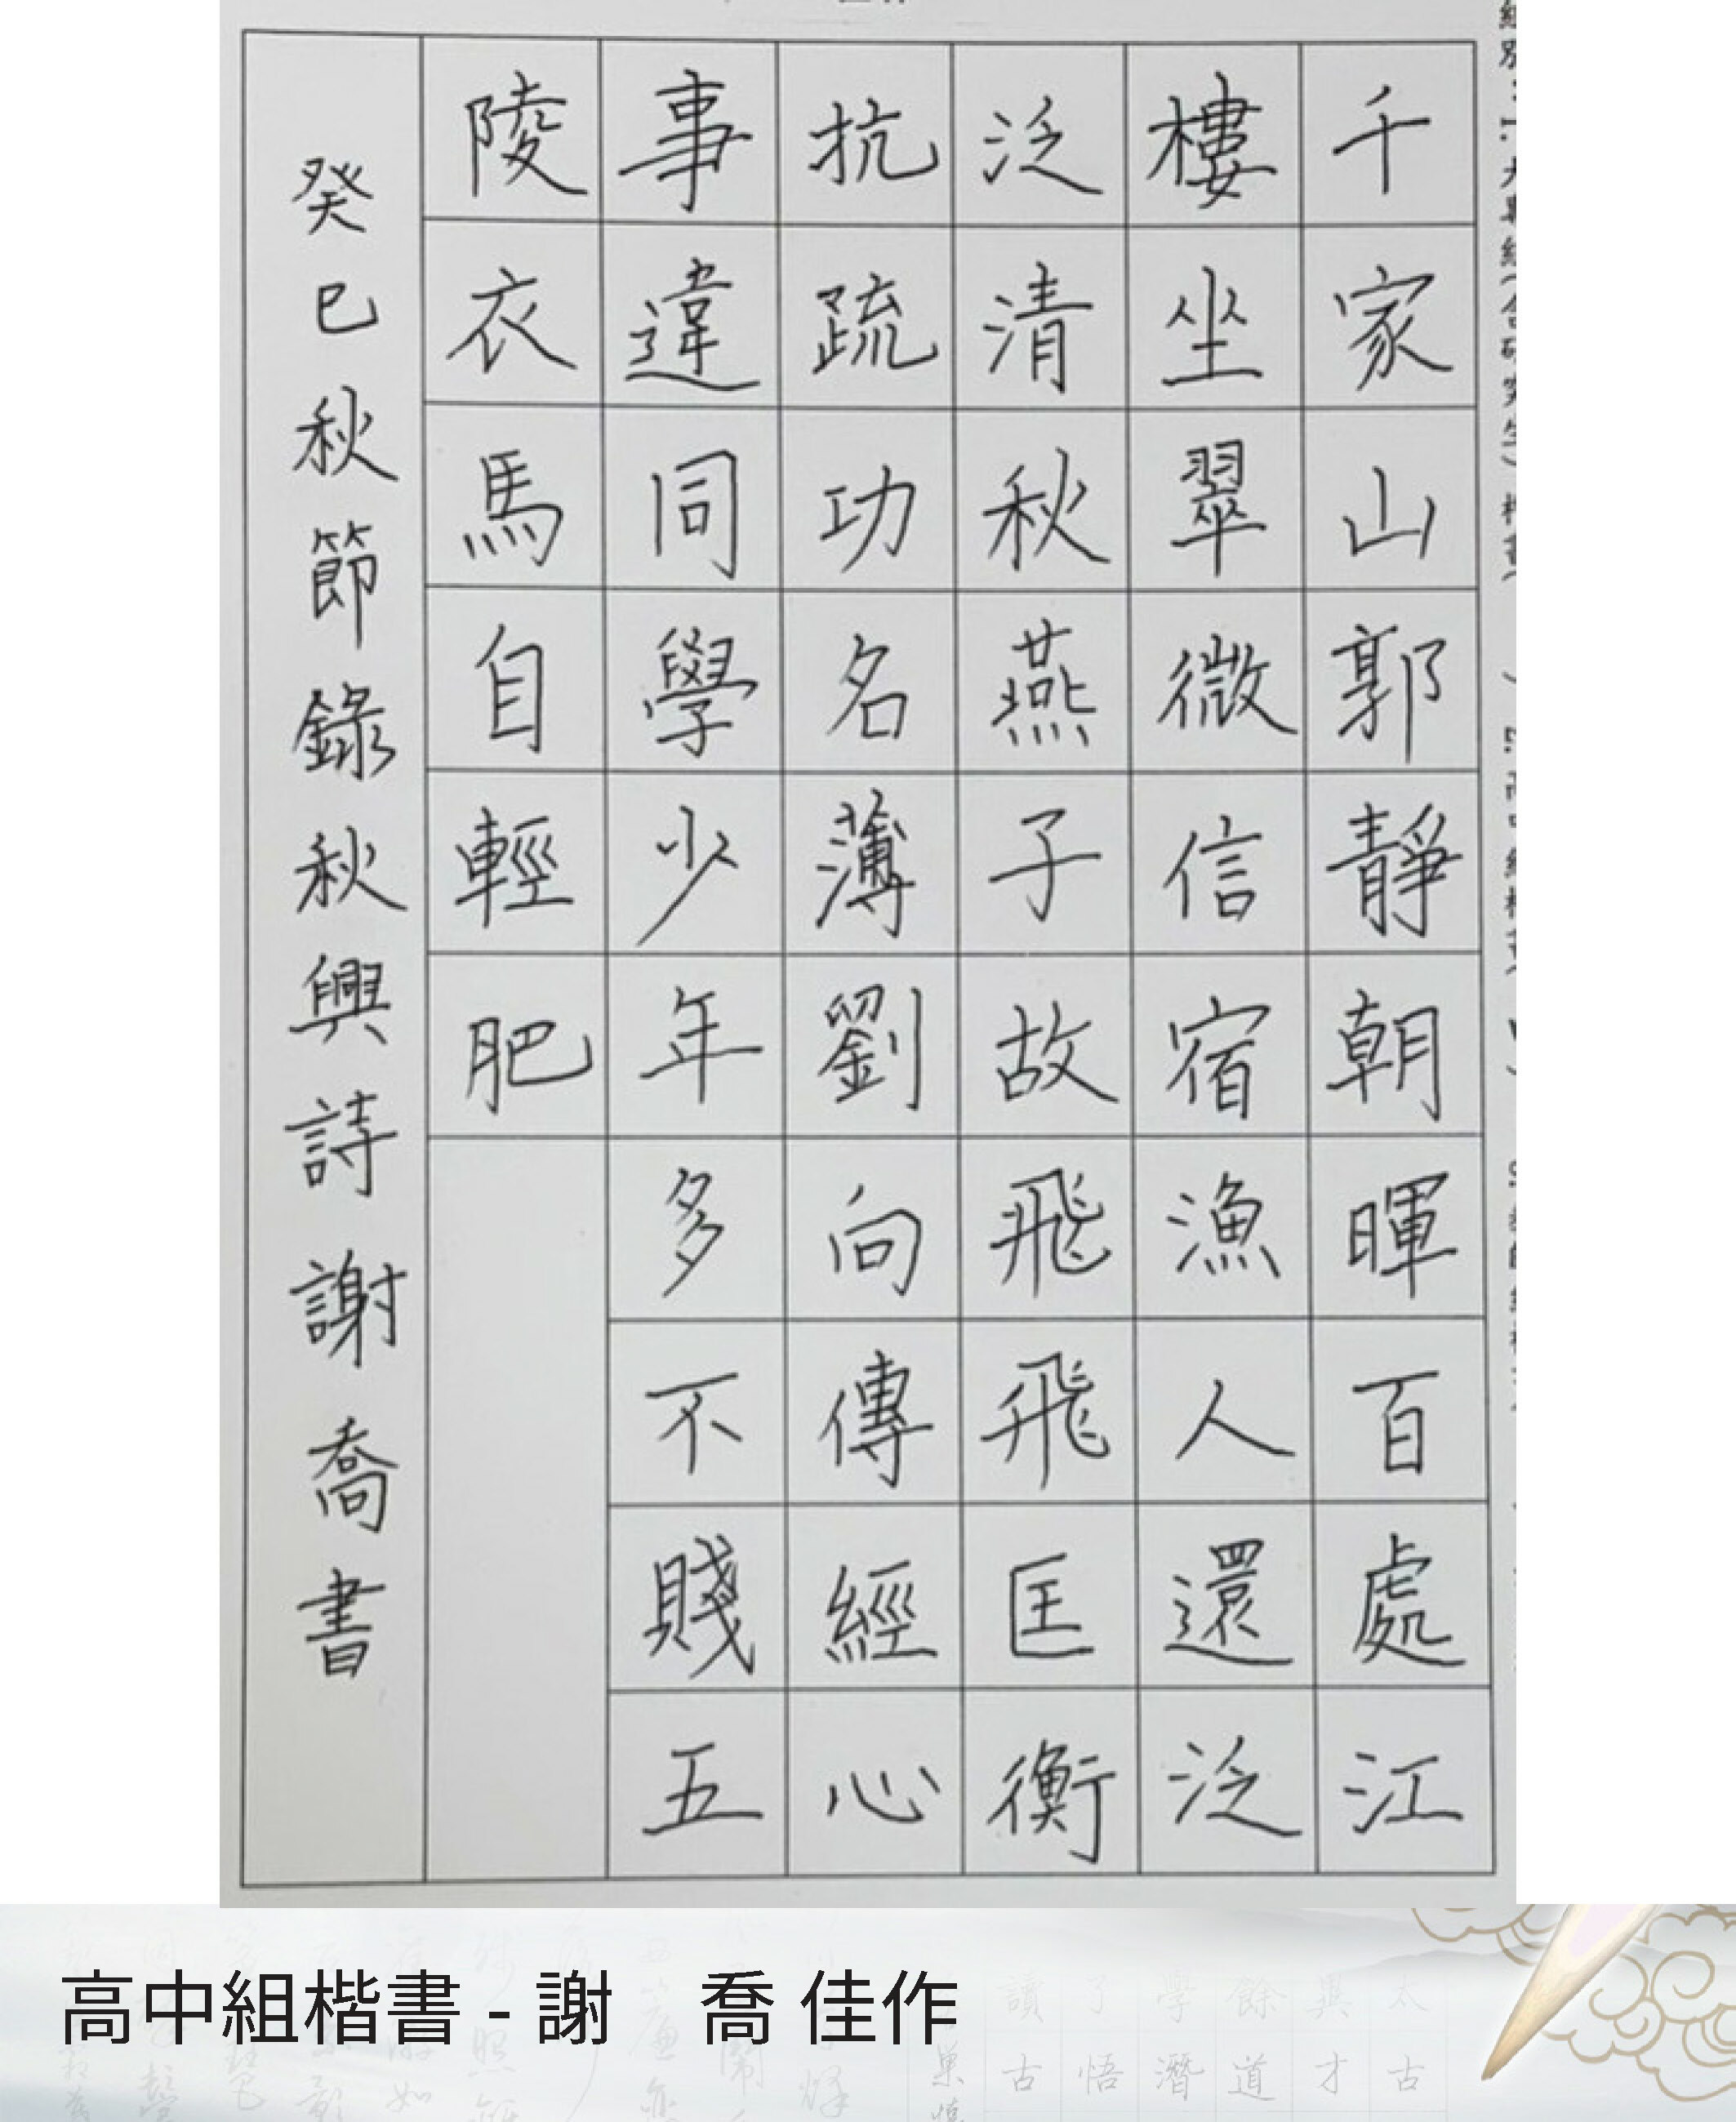 千家山郭靜朝暉百處江
樓坐翠微信宿漁人還泛
泛清秋燕子故飛飛匡衡
抗疏功名薄劉向傳經心
事違同學少年多不賤五
陵衣馬自輕肥
癸巳秋節錄秋興詩謝喬書
高中組楷書 - 謝　喬 佳作
讀了學餘與太
古悟潛道才古